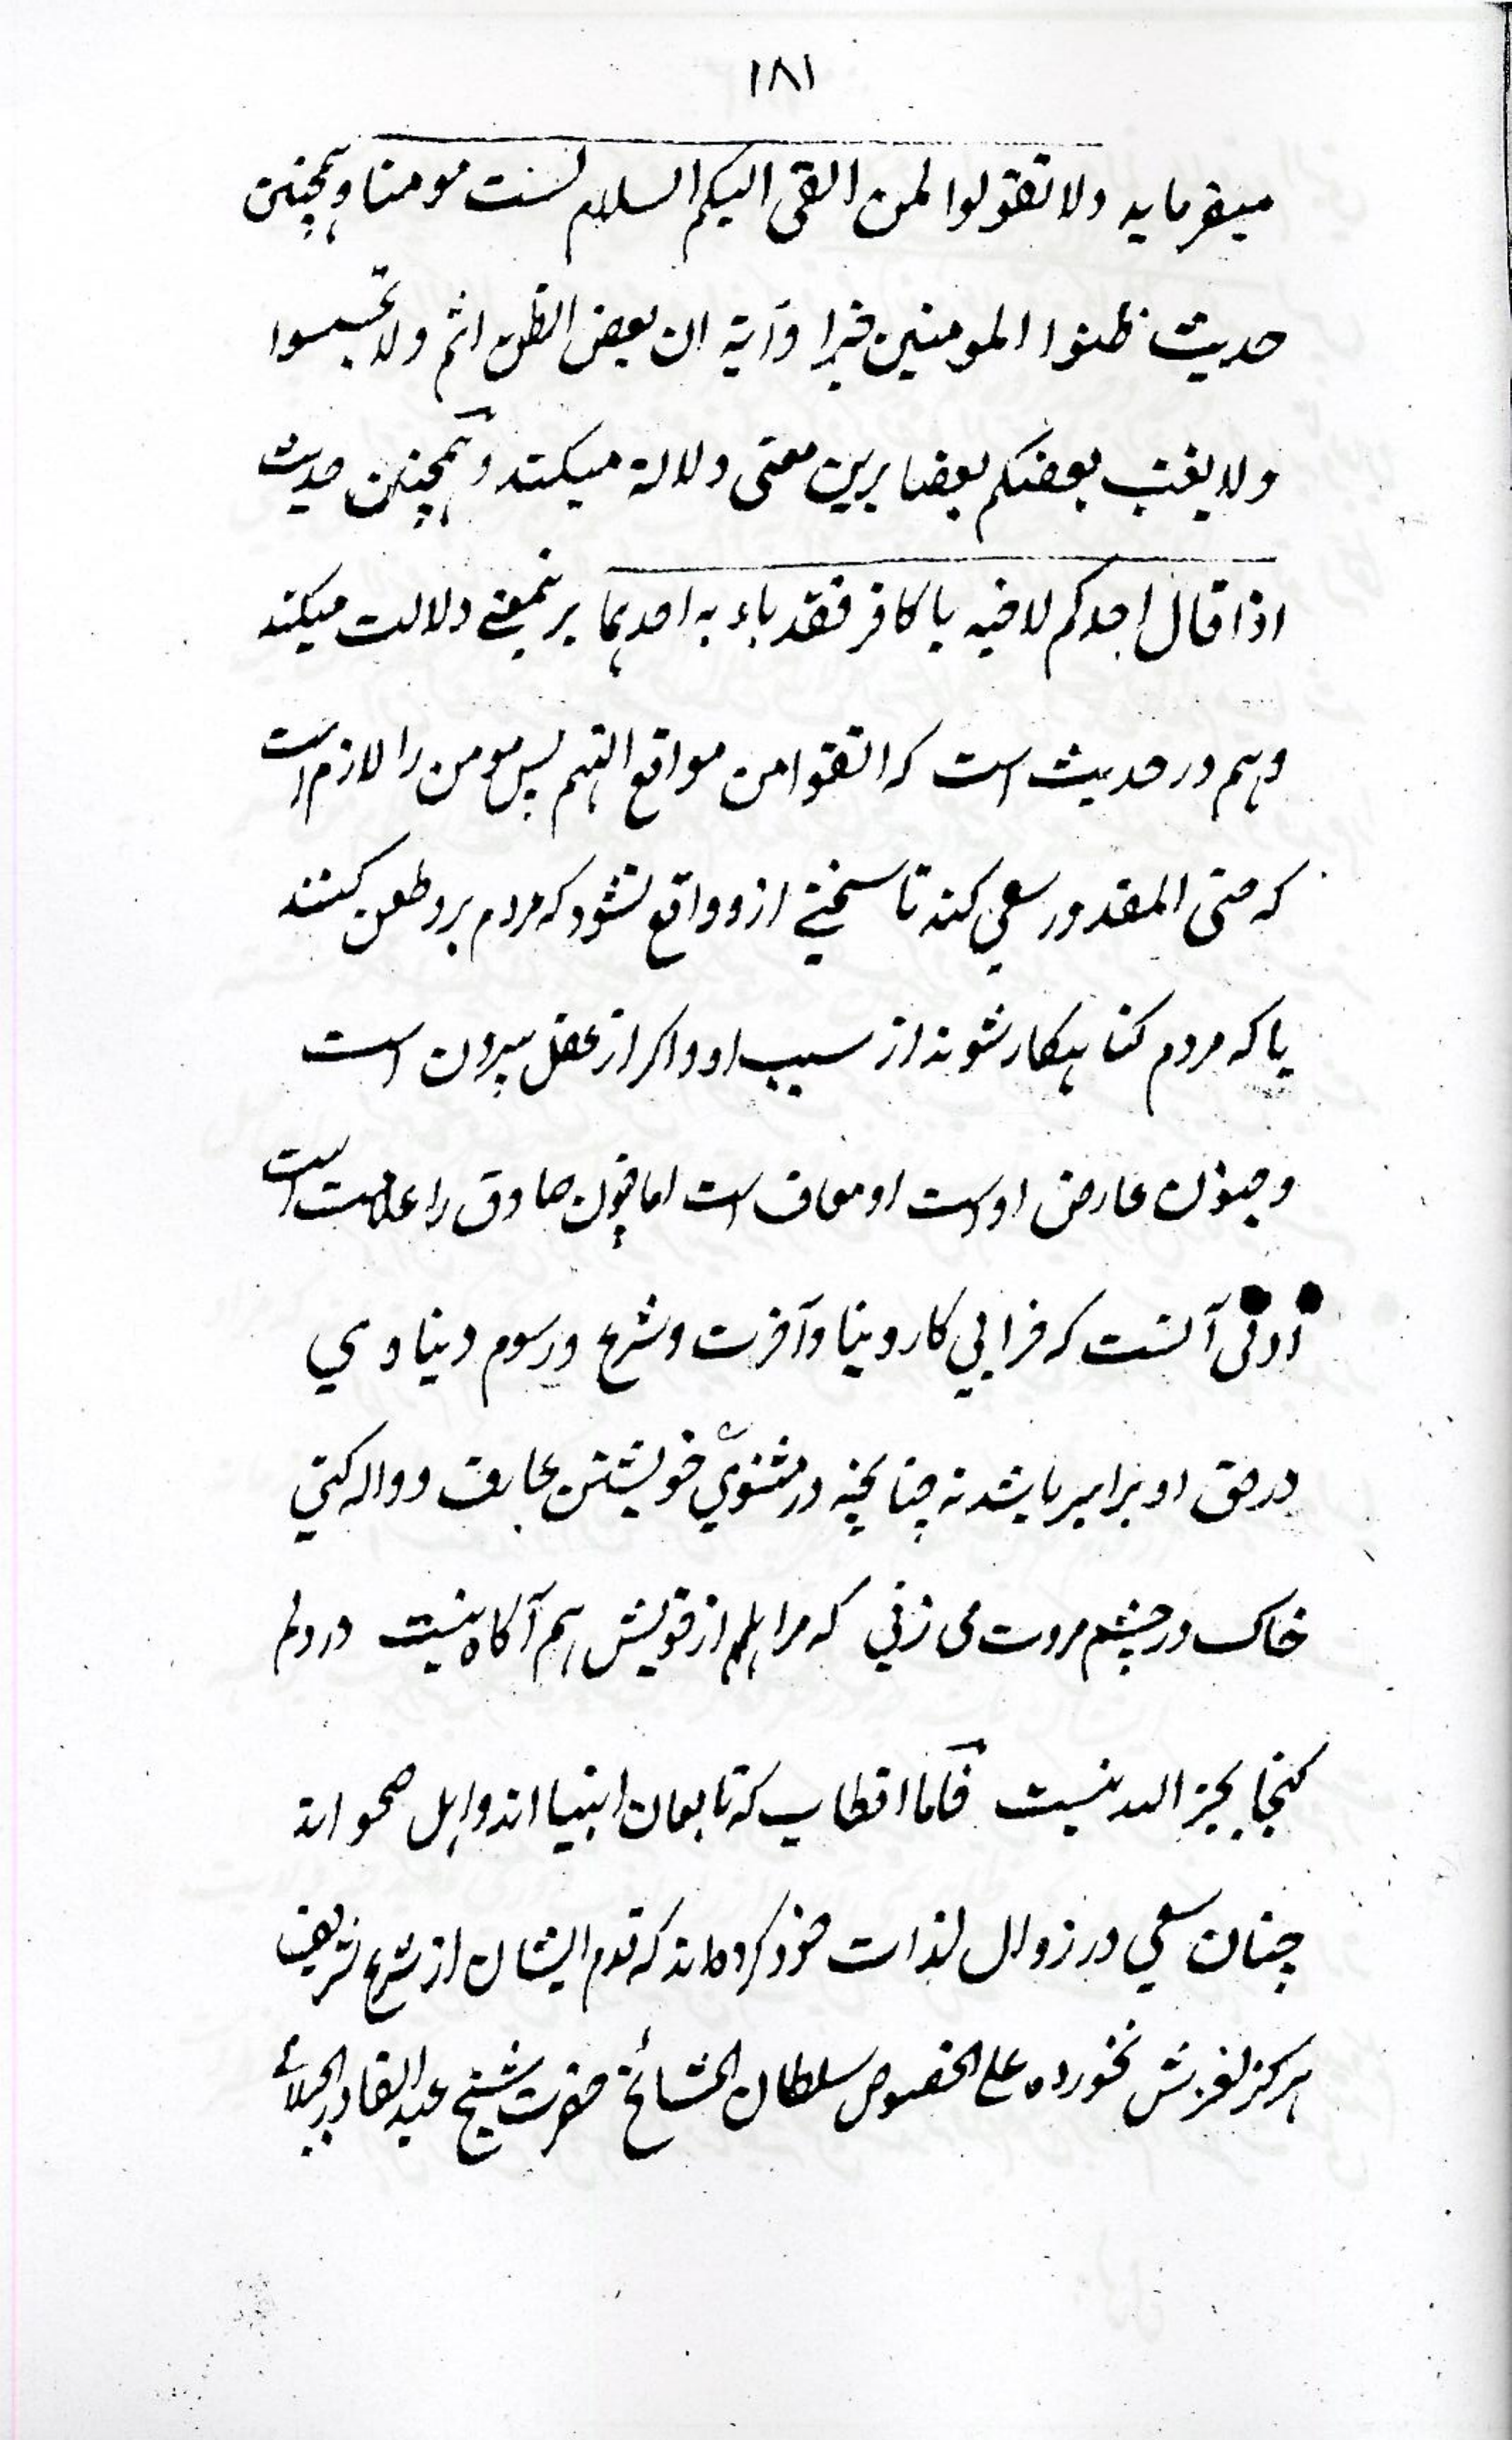 ۱۸۱
میفرماید ولا تقولوا لمن القی الیکم السلام لست مومنا وہمچنین
حدیث ظنوا المومنین خیرا وآیة ان بعض الظن اثم ولا تجسسوا
ولا یغتب بعضکم بعضا برین معنی دلالة میکند وہمچنین حدیث
اذا قال احدکم لاخیه یا کافر فقد باء به احدہما برینمعنے دلالت میکند
وہم در حدیث است که اتقوا من مواقع التہم پس مومن را لازم است
که حتی المقدور سعی کند تا سخنے ازو واقع نشود که مردم برو طعن کنند
یا که مردم کناہکار شوند از سبب او واکر از عقل بیرون است
وجنون عارض اوست او معاف است اما جنون صادق را علامت است
ادنی آنست که خرابی کار دنیا وآخرت وشرع ورسوم دنیاوی
در حق او برابر باشد نه چنانچه در مثنوی خویشتن عارف وواله کنی
خاک در چشم مروت می زنی که مرا ہم از خویش ہم آکاه نیست در دلم
کنجا بجز الله نیست فاما اقطاب که تابعان انبیا اند واہل صحو اند
چنان سعی در زوال لذات خود کرده اند که قدم ایشان از شرع شریف
ہرکز لغزش نخورده علی الخصوص سلطان المشائخ حضرت شیخ عبد القادر الجیلانی